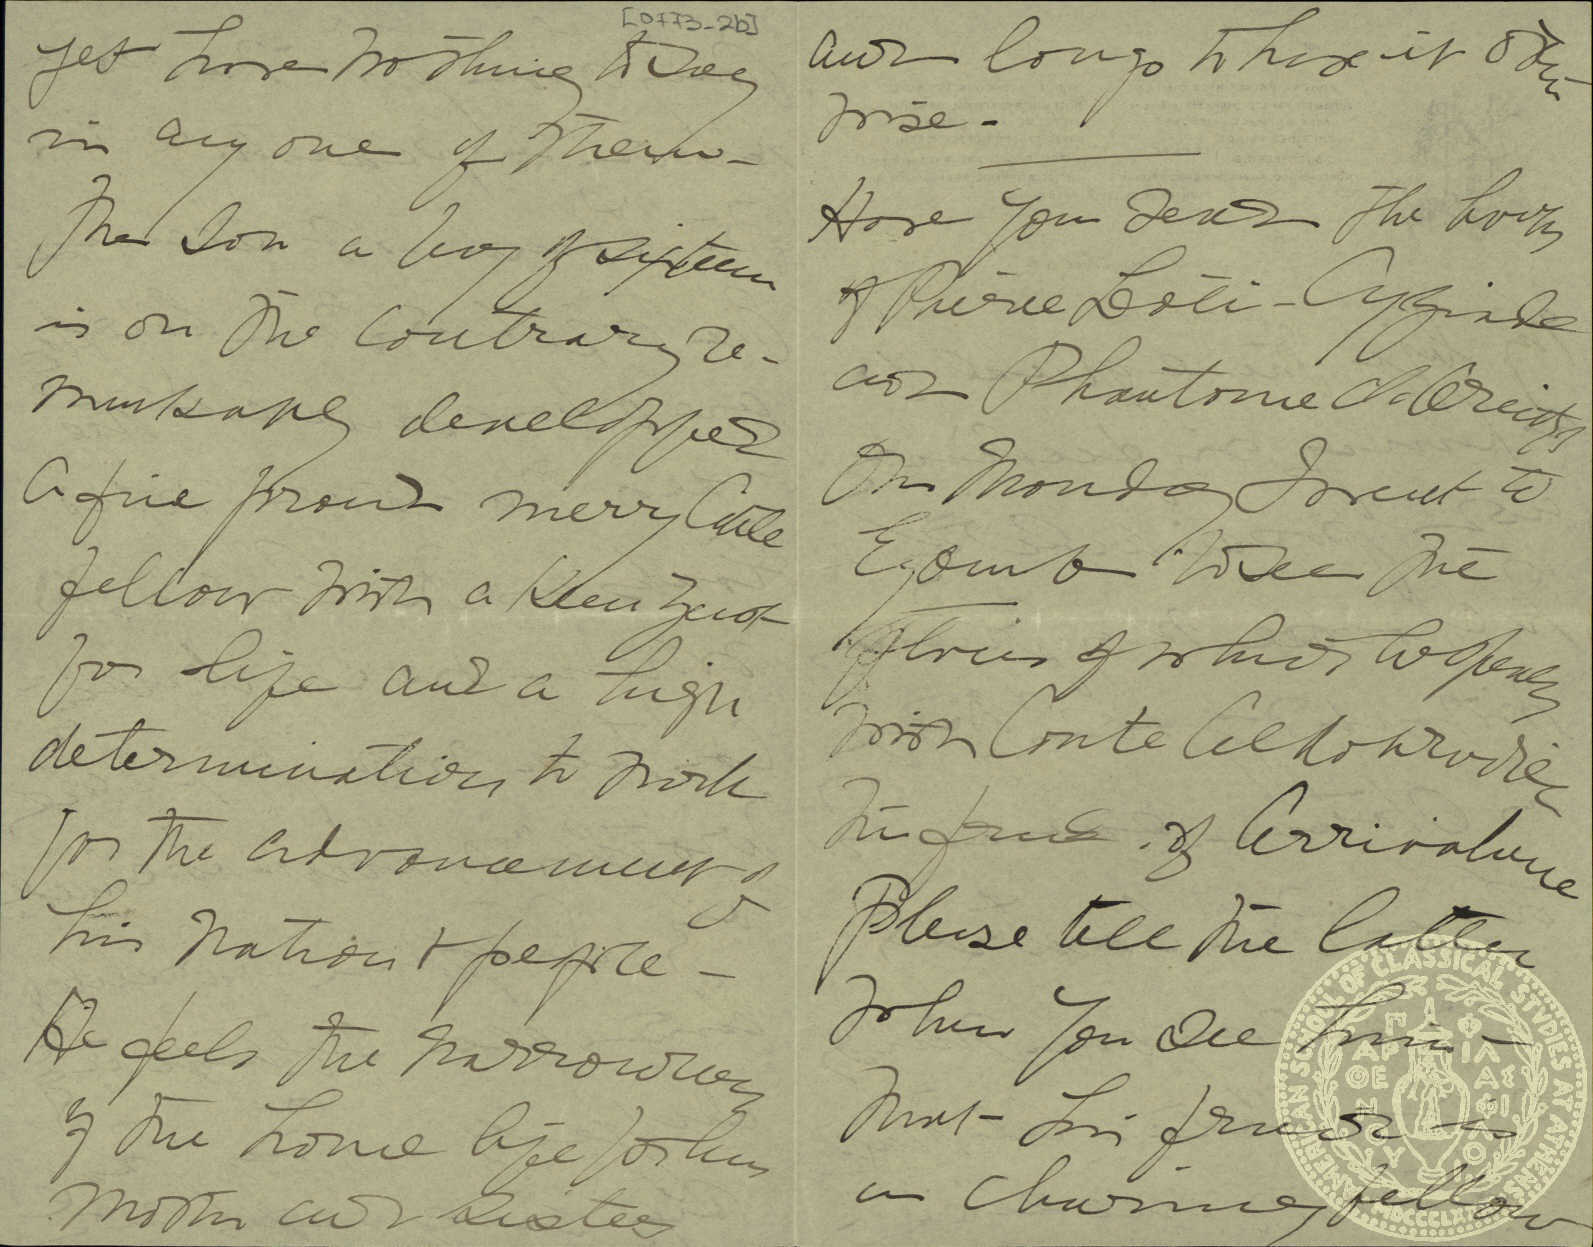 [0773-2b]
yet have nothing to say
in any one of them -
The son a boy of sixteen
is on the contrary re-
markably developped
a fine proud merry little
fellow with a keen zest
for life and a high
determination to work
for the advancement of
his nation & people -
He feels the narrowness
of the home life for his
mother and sisters
and longs to have it other
wise -
Have you read the books
of Pierre Loti - Aziade
and Phantome d'Orient
On Monday I went to
Eyoub to see the
of which he speaks
with Conte
the friend of Arrivabene
Please tell the latter
when you see him -
that his friend is
a charming fellow
AMERICAN SCHOOL OF CLASSICAL STVDIES AT ATHENS
MDCCCLXXXI